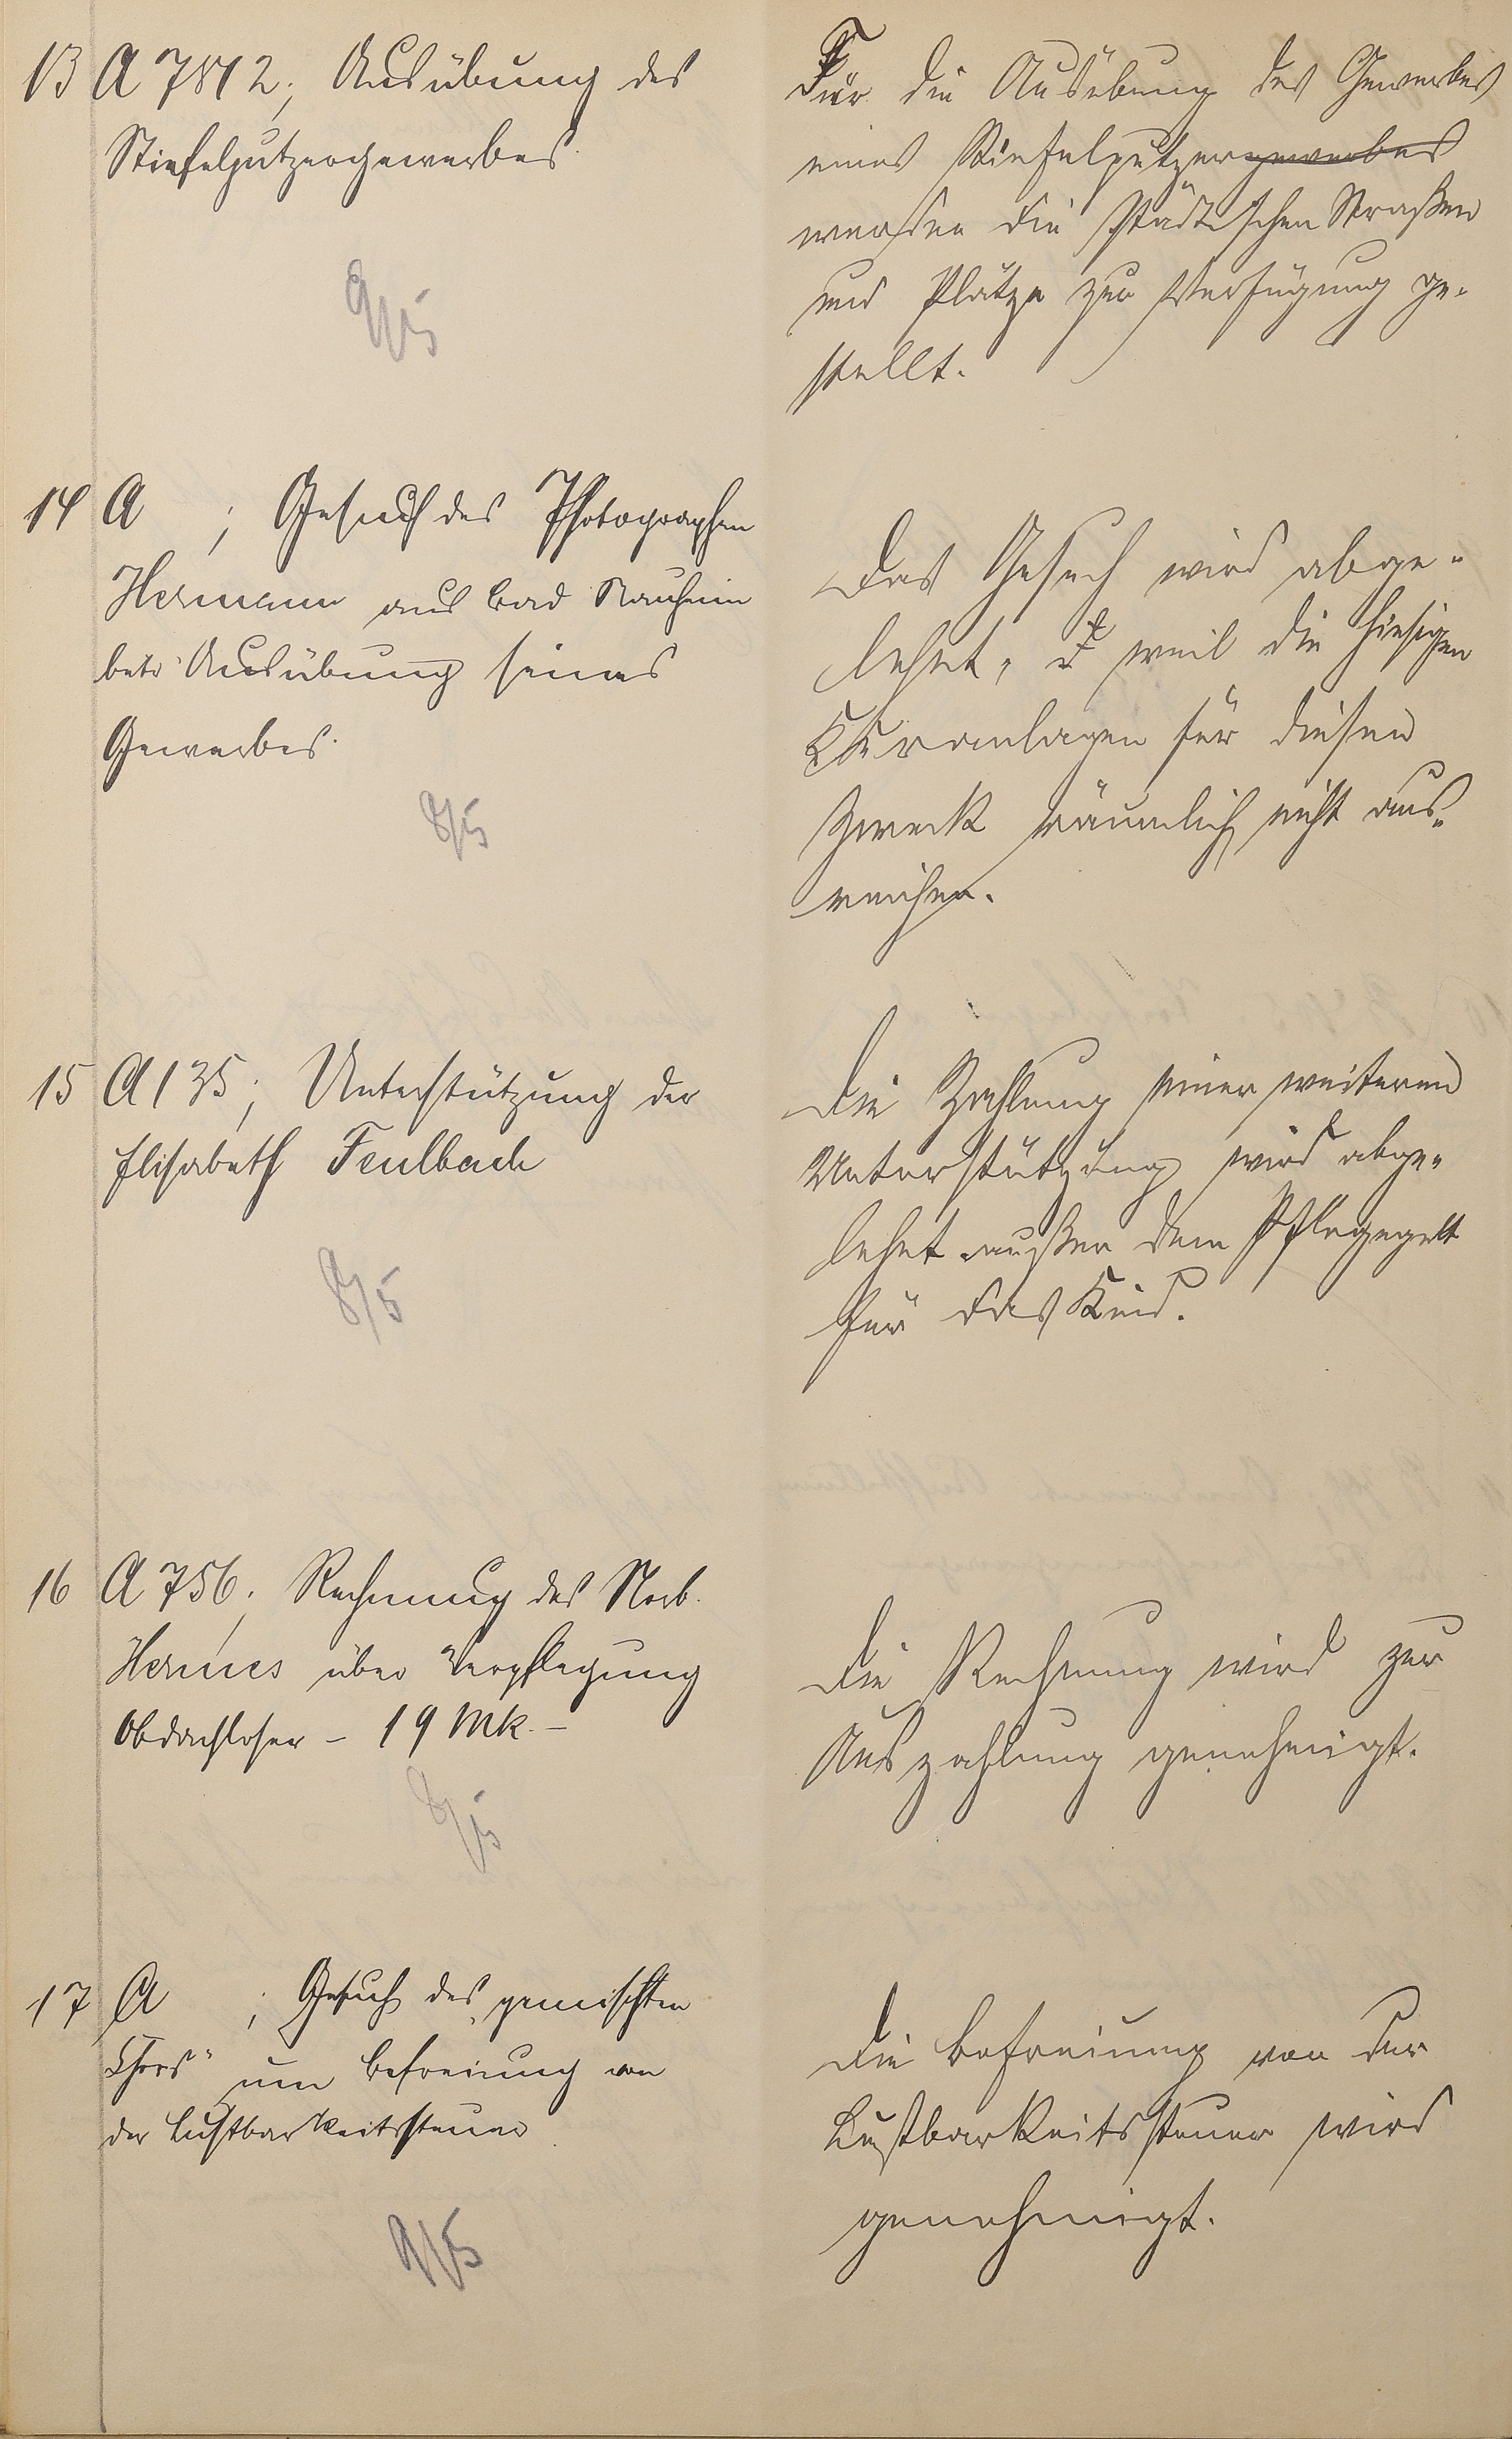 13 A 7812; Ausübung des
Stiefelputzergewerbes.
9/5
Für die Ausübung des Gewerbes
eines Stiefelputzergewerbes
werden die städtischen Straßen
und Plätze zur Verfügung ge-
stellt.
14 A ; Gesuch des Photographen
Hermann aus Bad Nauheim
betr. Ausübung seines
Gewerbes.
8/5
Das Gesuch wird abge-
lehnt, weil die hiesigen
Kuranlagen für diesen
Zweck räumlich nicht aus-
reichen.
15 A 135; Unterstützung der
Elisabeth Feulbach
8/5
Die Zahlung einer weiteren
Unterstützung wird abge-
lehnt außer dem Pflegegelt
für das Kind.
16 A 756; Rechnung des Norb.
Hermes über Verpflegung
Obdachloser - 19 Mk. -
8/5
Die Rechnung wird zur
Auszahlung genehmigt.
17 A ; Gesuch des „gemischten
Chors" um Befreiung von
der Lustbarkeitssteuer
9/5
Die Befreiung von der
Lustbarkeitssteuer wird
genehmigt.